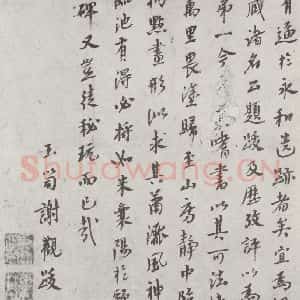 有過於永和遺跡者矣宜爲
藏諸名公題跋又歷攷評以爲
第一今
嗜書以其可法
萬里畏塗歸玉山房靜中臨
拘點畫形似求其蕭灑風神
臨池有得必將如米襄陽於
碑又豈徒秘玩而已哉
玉笥謝觀跋
Shufawang.CN